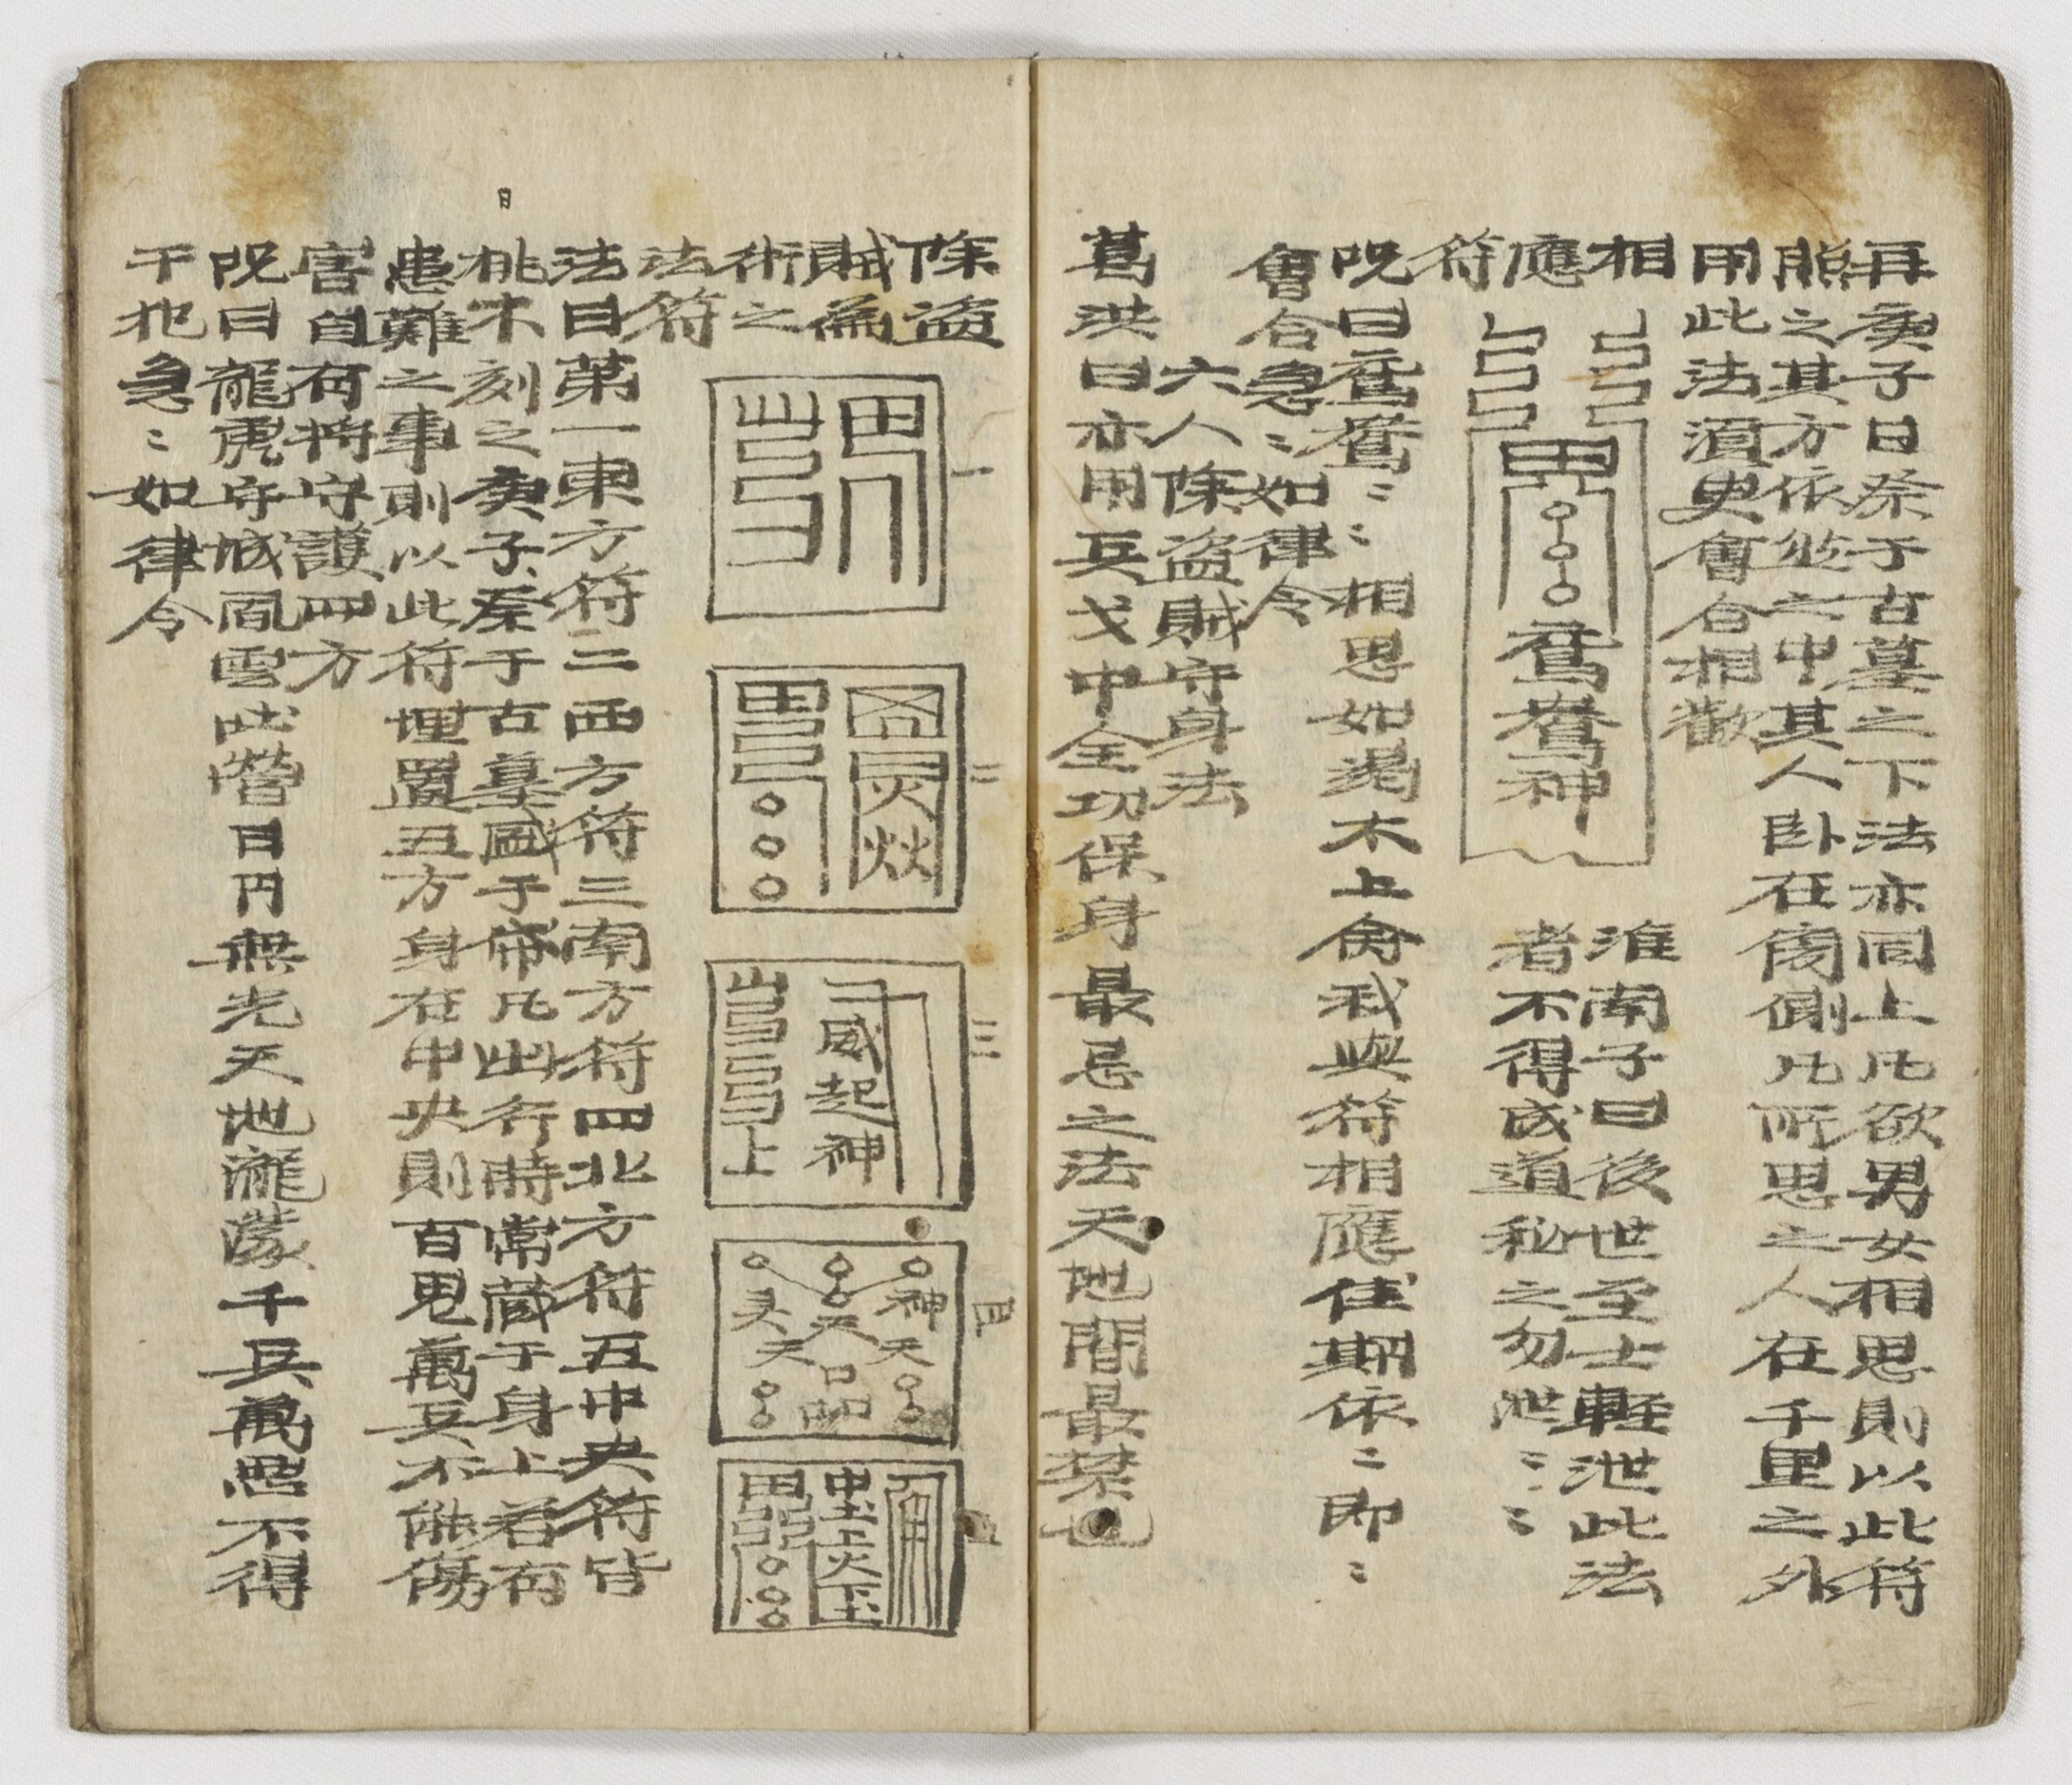 再庚子日祭于古墓之下法亦同上凡欲男女相思則以此符
照之其方依竝之中其人卧在傍側凡所思之人在千里之外
用此法須臾會合相歡
相應符
鴛鴦神
淮南子曰後世至士輕泄此法
者不得成道秘之勿泄〻〻
呪曰鴛鴦〻〻相思如渴木上禽我與符相應佳期依〻即〻
會合急〻如律令
六人除盜賊守身法
葛洪曰亦用兵戈中全功保身最忌之法天地間最禁也
除盜賊為術之法符
一
二
三
威起神
上
四
神天
天品
天
五
法曰第一東方符二西方符三南方符四北方符五中央符皆
日
桃木刻之庚子祭于古墓盛于帒凡出行時常藏于身上若有
患難之事則以此符埋置五方身在中央則百鬼萬兵不能傷
害自有將守護四方
呪曰龍虎守城風雲吐營日円無光天地瀧濛千兵萬思不得
干犯急〻如律令